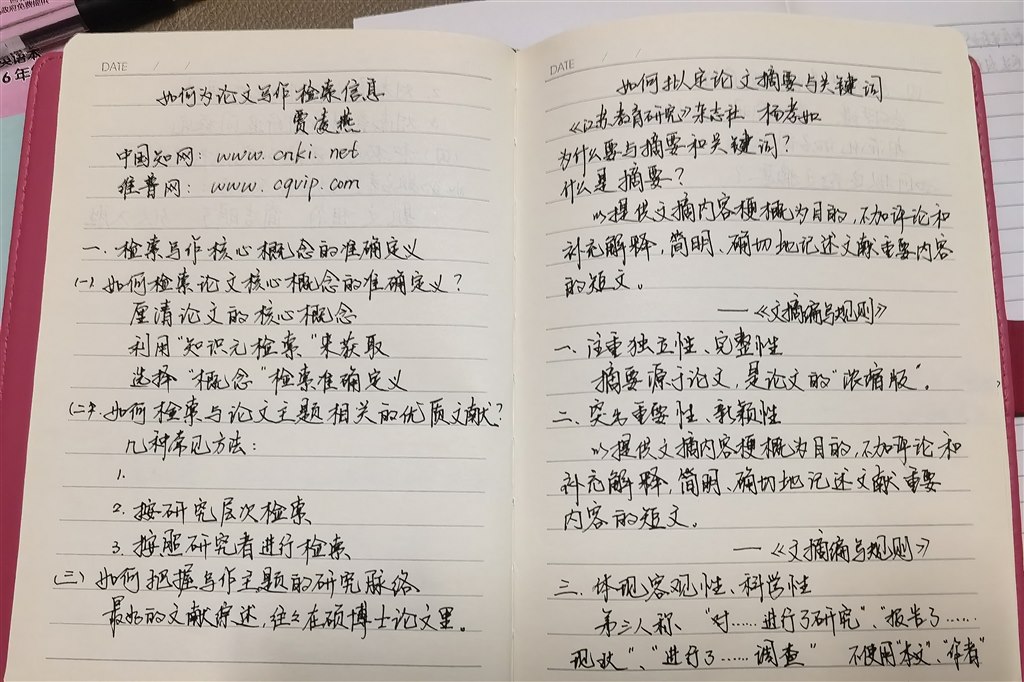 英语本
6年
DATE / /
如何为论文写作检索信息
贾凌燕
中国知网：www.cnki.net
维普网：www.cqvip.com
一.检索写作核心概念的准确定义
(一).如何检索论文核心概念的准确定义？
厘清论文的核心概念
利用"知识元检索"来获取
选择"概念"检索准确定义
(二).如何检索与论文主题相关的优质文献？
几种常见方法：
1.
2.按研究层次检索
3.按照研究者进行检索
(三)如何把握写作主题的研究脉络
最好的文献综述，往往在硕博士论文里。
DATE / /
如何拟定论文摘要与关键词
《江苏教育研究》杂志社 杨孝如
为什么要写摘要和关键词？
什么是摘要？
以提供文摘内容梗概为目的，不加评论和
补充解释，简明、确切地记述文献重要内容
的短文。
——《文摘编写规则》
一、注重独立性、完整性
摘要源于论文，是论文的"浓缩版"。
二、突出重要性、新颖性
以提供文摘内容梗概为目的，不加评论和
补充解释，简明、确切地记述文献重要
内容的短文。
——《文摘编写规则》
三、体现客观性、科学性
第三人称、"对……进行了研究"、"报告了……
现状"、"进行了……调查" 不使用"本文"、"作者"